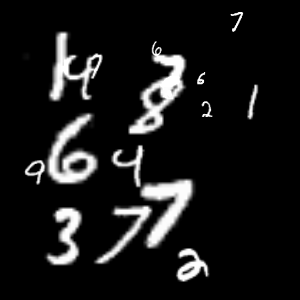 7
1 4 9 6 7 6
8 2 1
9 6 4
3 7 7
2